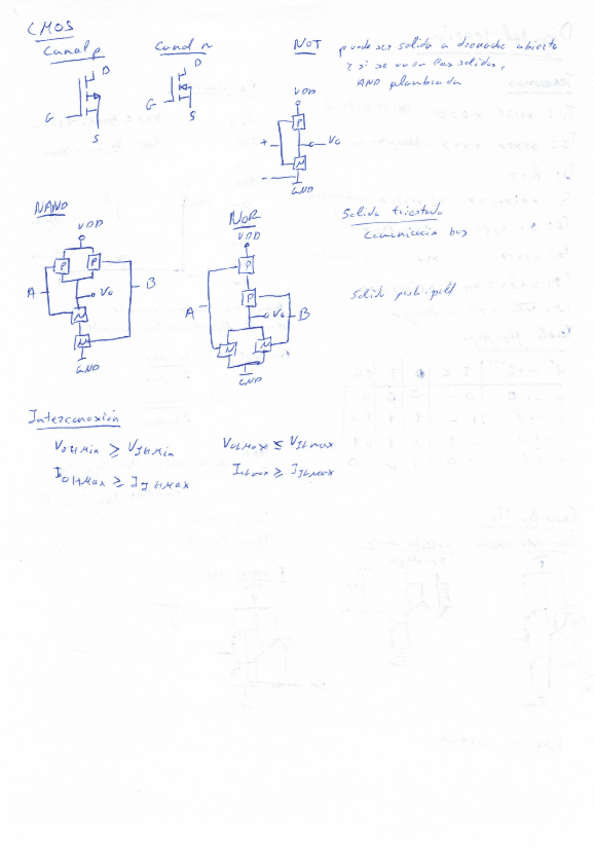 CMOS
Canal p
Canal n
NOT
puede ser salida a drenador abierto
y si se unen las salidas,
AND plambrada
D
G
S
D
G
S
VDD
P
+
Vo
N
-
GND
NAND
VDD
P
P
A
B
Vo
N
N
GND
NOR
VDD
P
P
A
Vo
B
N
N
GND
Salida triestado
Comunicación bus
Salida push-pull
Interconexión
VOHMin ≥ VIHMin
VOLMax ≤ VILmax
IOHMax ≥ IIHMax
IOLmax ≥ IILMax